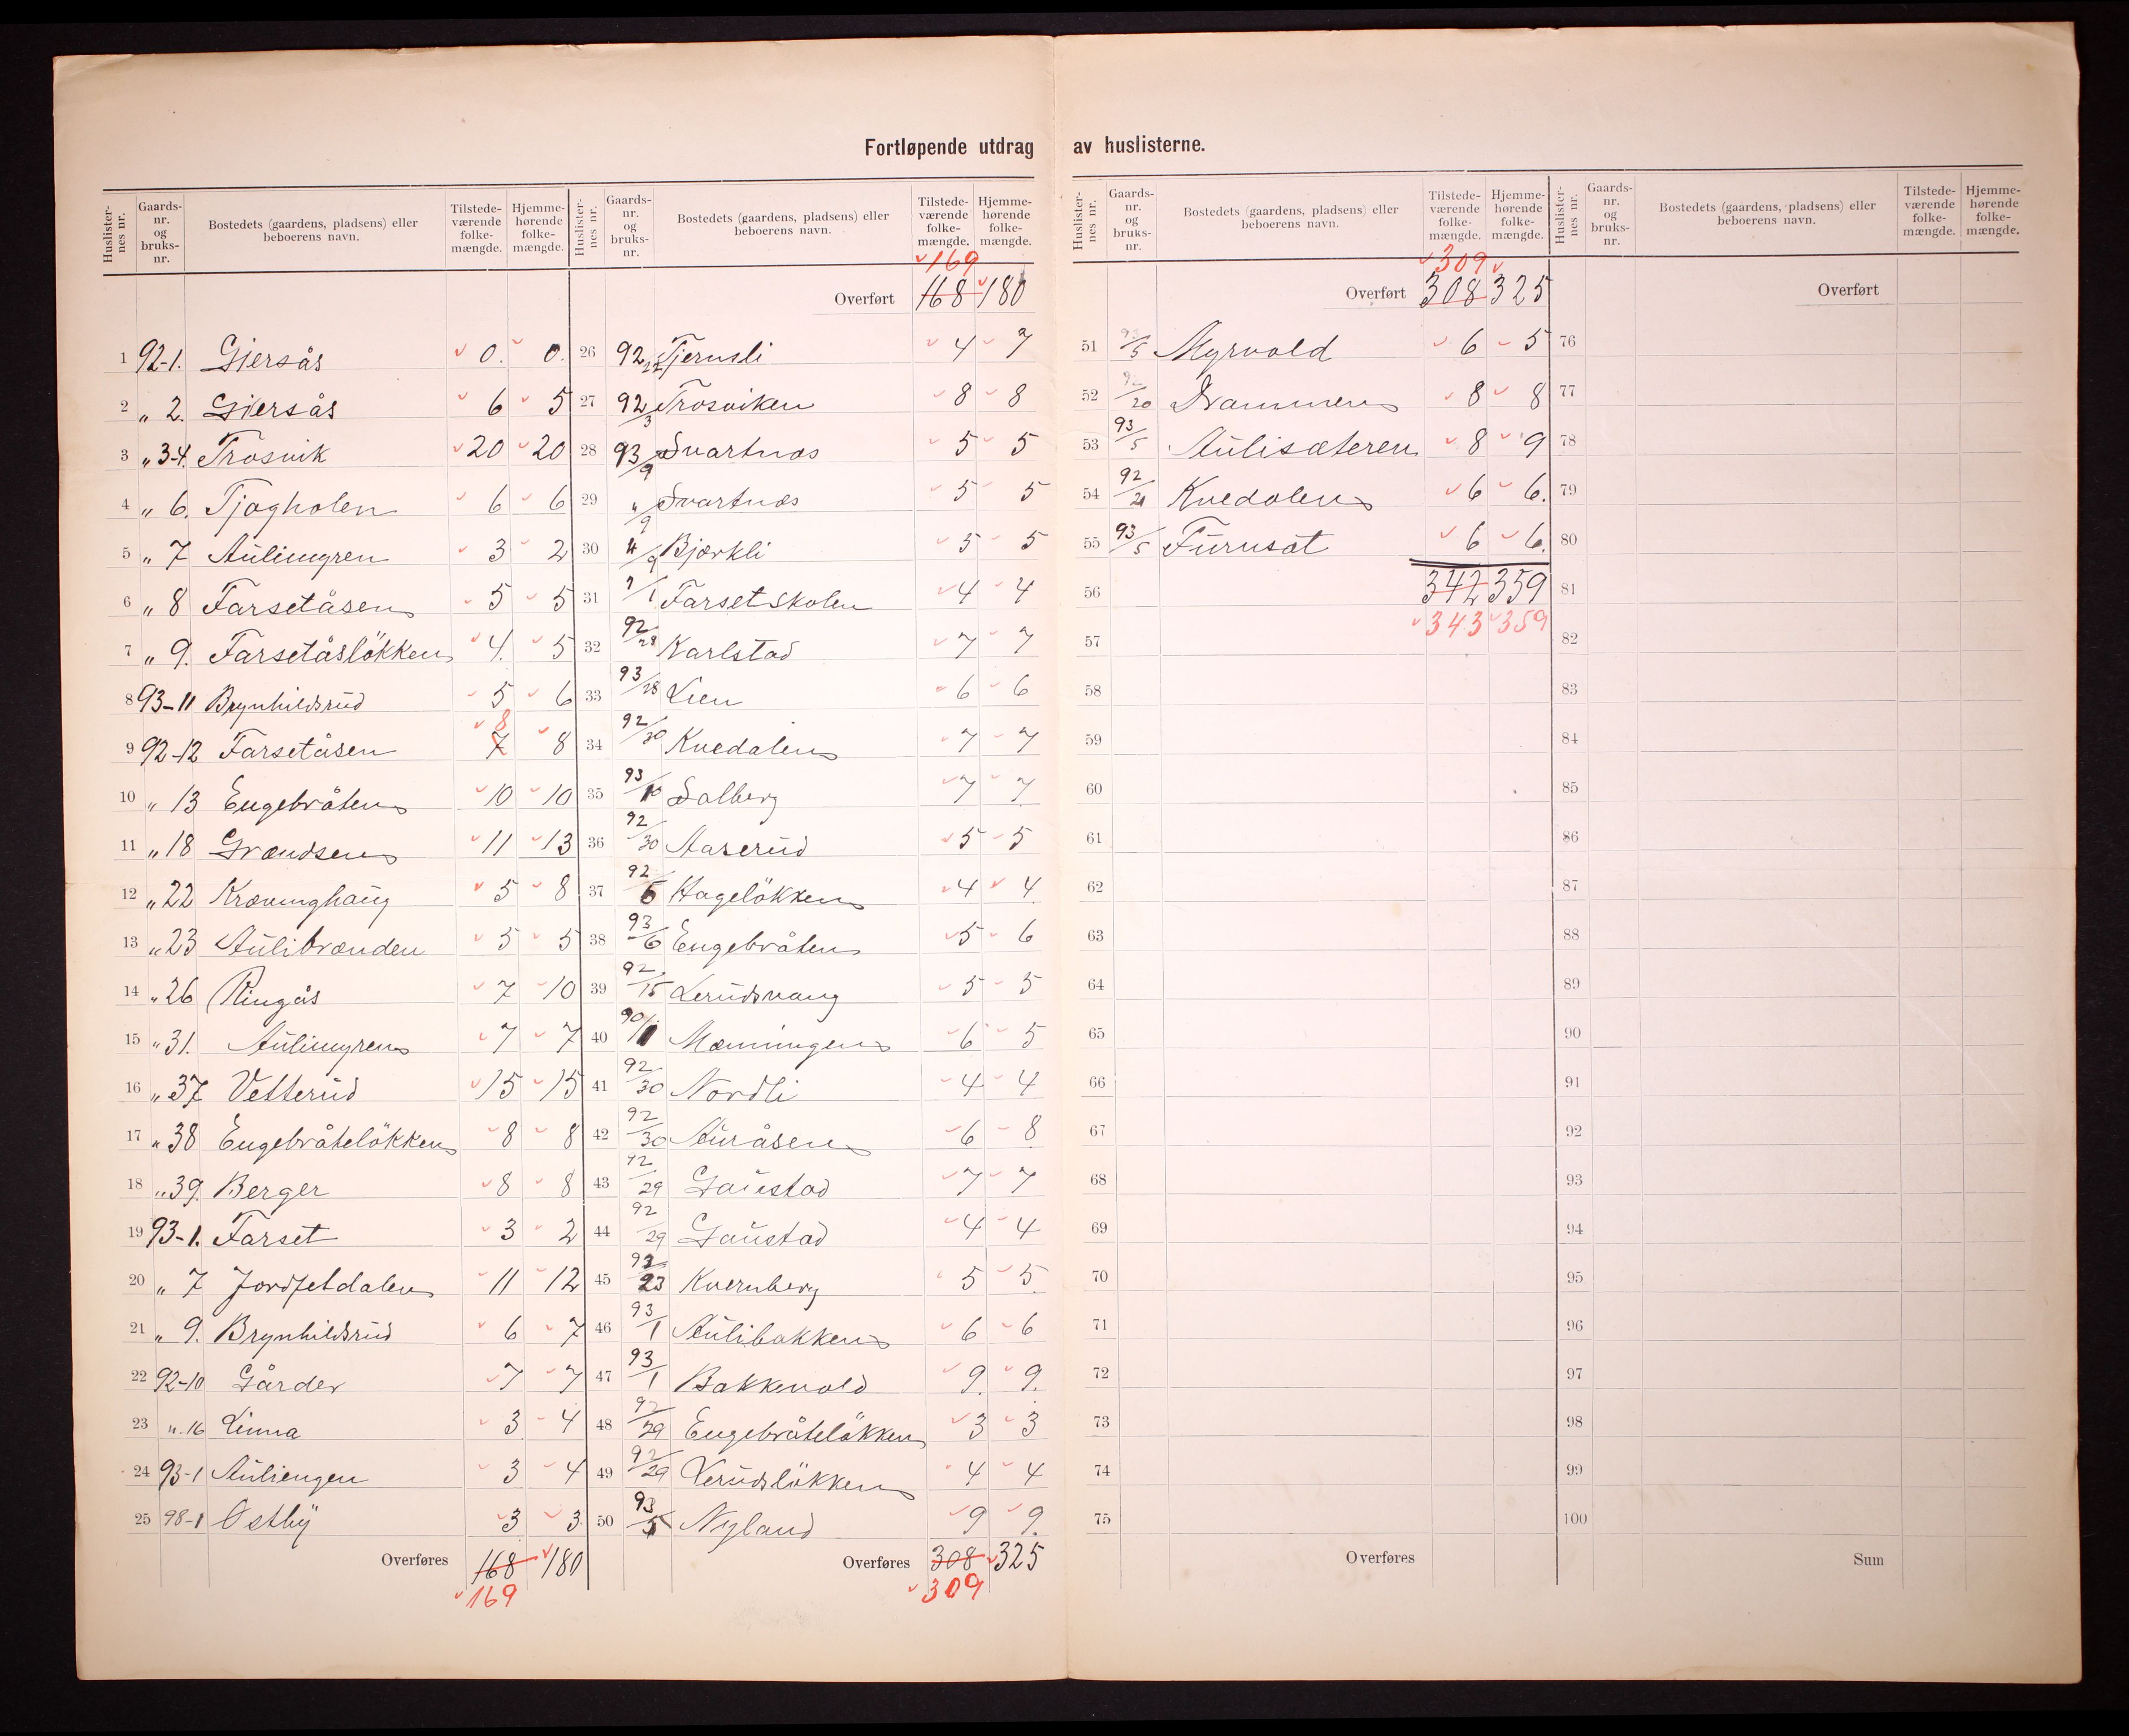 Fortløpende utdrag av huslisterne.
Huslister-nes nr. Gaards-nr. og bruks-nr. Bostedets (gaardens, pladsens) eller beboerens navn. Tilstede-værende folke-mængde. Hjemme-hørende folke-mængde.
1 92-1. Giersås 0. 0.
2 " 2. Giersås 6 5
3 " 3-4. Trosvik 20 20
4 " 6. Tjagholen 6 6
5 " 7 Aulimyren 3 2
6 " 8 Farsetåsen 5 5
7 " 9. Farsetåslökken 4. 5
8 93-11 Brynhildsrud 5 6
9 92-12 Farsetåsen 7 8 8
10 " 13 Engebråten 10 10
11 " 18 Grændsen 11 13
12 " 22 Kræminghaug 5 8
13 " 23 Aulibrænden 5 5
14 " 26 Ringås 7 10
15 " 31. Aulimyren 7 7
16 " 37 Vetterud 15 15
17 " 38 Engebråtelökken 8 8
18 " 39. Berger 8 8
19 93-1. Farset 3 2
20 " 7 Jordfetdalen 11 12
21 " 9. Brynhildsrud 6 7
22 92-10 Gårder 7 7
23 "-16 Linna 3 4
24 93-1 Auliengen 3 4
25 98-1 Østby 3 3
Overføres 168 180
169
Huslister-nes nr. Gaards-nr. og bruks-nr. Bostedets (gaardens, pladsens) eller beboerens navn. Tilstede-værende folke-mængde. Hjemme-hørende folke-mængde.
169
Overført 168 180
26 92 Tjernsli 4 7
27 92/3 Trosviken 8 8
28 93/9 Svartnæs 5 5
29 "/9 Svartnæs 5 5
30 "/9 Bjørkli 5 5
31 "/1 Farsetskolen 4 4
32 92/28 Karlstad 7 7
33 93/18 Lien 6 6
34 92/30 Kvedalen 7 7
35 93 Solberg 7 7
36 92/30 Aaserud 5 5
37 92/6 Hagelökken 4 4
38 93/6 Engebråten 5 6
39 92/15 Lerudsvang 5 5
40 90/1 Mænningen 6 5
41 92/30 Nordli 4 4
42 92/30 Auråsen 6 8
43 92/29 Gaustad 7 7
44 92/29 Gaustad 4 4
45 92/23 Kvernberg 5 5
46 93/1 Aulibakken 6 6
47 93/1 Bakkevold 9. 9.
48 92/29 Engebråtelökken 3 3
49 92/29 Lerudslökken 4 4
50 93/5 Nyland 9 9.
Overføres 308 325
309
Huslister-nes nr. Gaards-nr. og bruks-nr. Bostedets (gaardens, pladsens) eller beboerens navn. Tilstede-værende folke-mængde. Hjemme-hørende folke-mængde.
309
Overført 308 325
51 93/5 Myrvold 6 5
52 92/20 Drammen 8 8
53 93/5 Aulisæteren 8 9
54 92/21 Kvedalen 6 6.
55 93/5 Furusat 6 6.
56 342 359
343 359
57
58
59
60
61
62
63
64
65
66
67
68
69
70
71
72
73
74
75
Overføres
Huslister-nes nr. Gaards-nr. og bruks-nr. Bostedets (gaardens, pladsens) eller beboerens navn. Tilstede-værende folke-mængde. Hjemme-hørende folke-mængde.
Overført
76
77
78
79
80
81
82
83
84
85
86
87
88
89
90
91
92
93
94
95
96
97
98
99
100
Sum